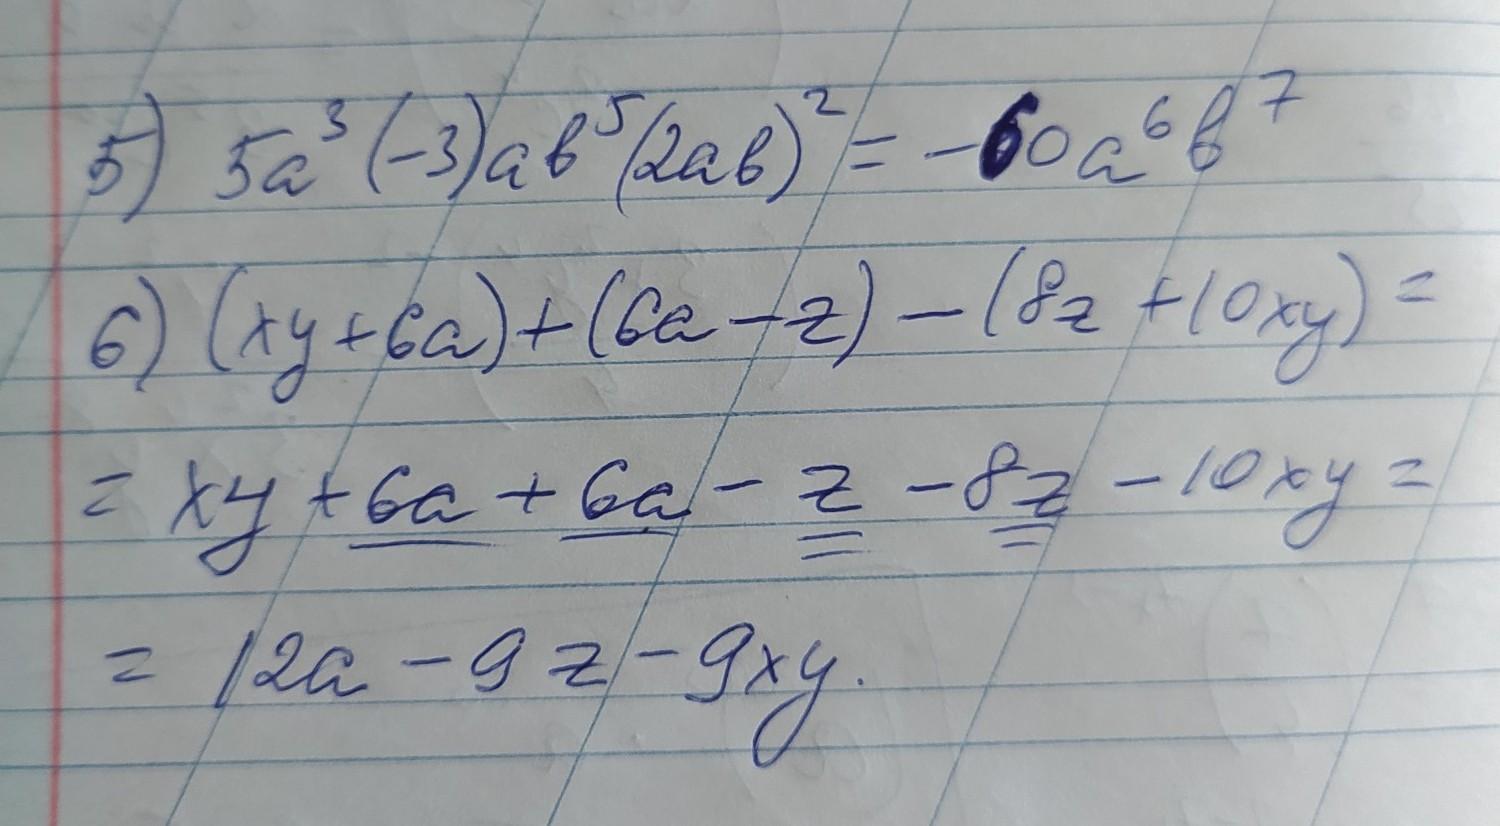 5) 5a³(-3)ab⁵(2ab)² = -60a⁶b⁷
6) (xy+6a)+(6a-z)-(8z+10xy)=
= xy+6a+6a-z-8z-10xy=
= 12a-9z-9xy.